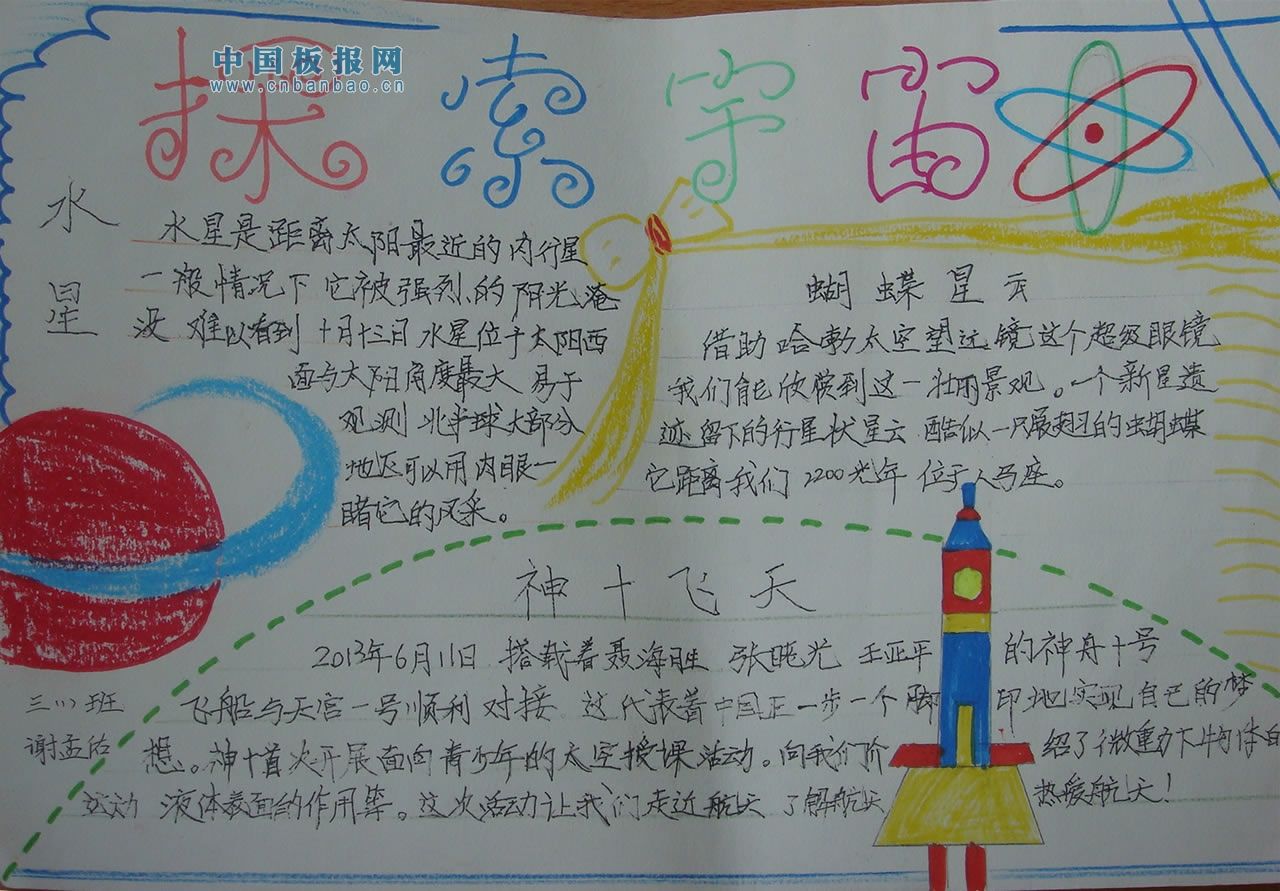 中国板报网
www.cnbanbao.cn
探索宇宙
水星
水星是距离太阳最近的内行星
一般情况下它被强烈的阳光淹
没 难以看到 十月十三日 水星位于太阳西
面与太阳角度最大 易于
观测 北半球大部分
地区可以用肉眼一
睹它的风采。
蝴蝶星云
借助哈勃太空望远镜这个超级眼镜
我们能欣赏到这一壮丽景观。一个新星遗
迹留下的行星状星云 酷似一只展翅的蝴蝶
它距离我们 2200光年 位于人马座。
神十飞天
2013年6月11日 搭载着聂海胜 张晓光 王亚平 的神舟十号
三(1)班
飞船与天宫一号顺利对接 这代表着中国正一步一个脚印地实现自己的梦
谢孟佑
想。神十首次开展面向青少年的太空授课活动。向我们介绍了微重力下物体的
运动 液体表面的作用等。这次活动让我们走近航天 了解航天 热爱航天!